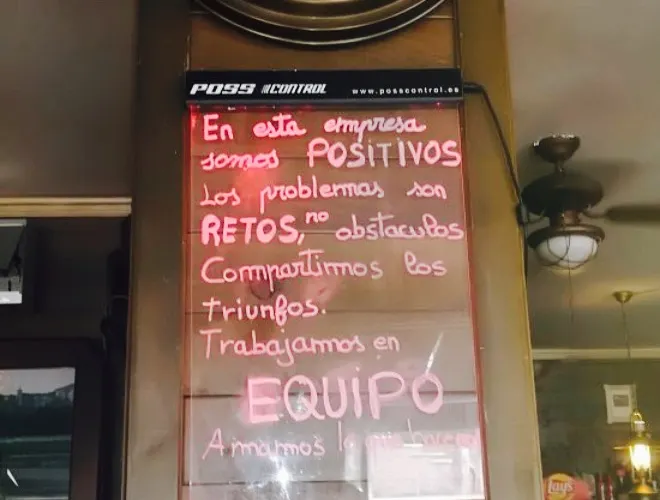 POSS CONTROL www.posscontrol.es
En esta empresa
somos POSITIVOS
Los problemas son
RETOS, no obstaculos
Compartimos los
triunfos.
Trabajamos en
EQUIPO
Amamos lo que hacemos
Lay's